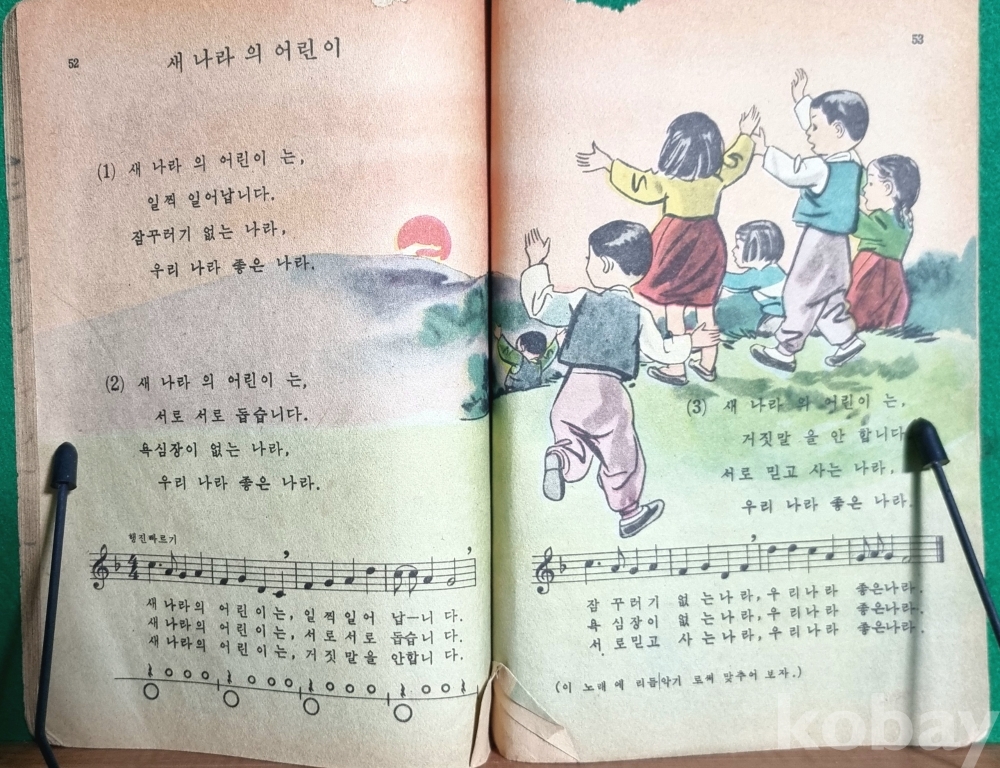 52
새 나라 의 어린이
(1) 새 나라 의 어린이 는,
일찍 일어납니다.
잠꾸러기 없는 나라,
우리 나라 좋은 나라.
(2) 새 나라 의 어린이 는,
서로 서로 돕습니다.
욕심장이 없는 나라,
우리 나라 좋은 나라.
행진빠르기
4/4
새 나라의 어린이는, 일찍일어 납ㅡ니 다.
새 나라의 어린이는, 서로서로 돕습니 다.
새 나라의 어린이는, 거짓말을 안합니 다.
53
(3) 새 나라 의 어린이 는,
거짓말 을 안 합니다
서로 믿고 사는 나라,
우리 나라 좋은 나라.
잠 꾸러기 없 는나라, 우리나라 좋은나라.
욕 심장이 없 는나라, 우리나라 좋은나라.
서 로믿고 사 는나라, 우리나라 좋은나라.
(이 노래 에 리듬악기 로써 맞추어 보자.)
kobay